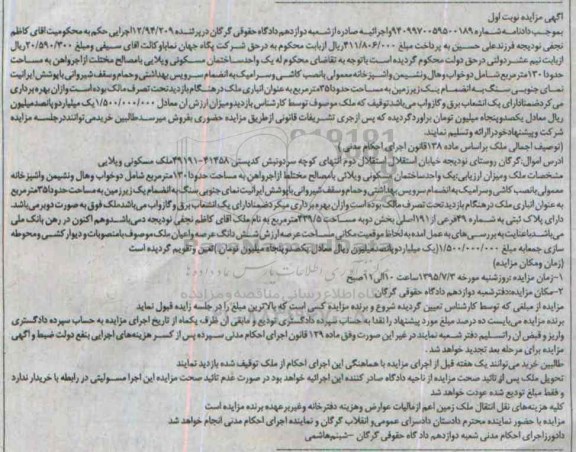 آگهی مزایده نوبت اول
بموجب دادنامه شماره ۹۴۰۹۹۷۰۰۵۹۵۰۰۱۸۹ واجرائیه صادره از شعبه دوازدهم دادگاه حقوقی گرگان درپرونده ۱۲/۹۴/۲۰۹ اجرایی حکم به محکومیت آقای کاظم
نجفی نودیجه فرزند علی حسین به پرداخت مبلغ ۳۱۱/۸۰۶/۰۰۰ ریال از بابت محکوم به در حق شرکت پگاه جهان نما باوکالت آقای سیفی ومبلغ ۲۰/۵۹۰/۳۰۰ ریال
از بابت نیم عشر دولتی در حق دولت محکوم گردیده است باتوجه به تقاضای محکوم له یک واحد ساختمان مسکونی ویلایی بامصالح مختلط از آجر و آهن به مساحت
حدودا ۱۳۰ مترمربع شامل دو خواب وهال ونشیمن و آشپزخانه معمولی بانصب کاشی وسرامیک به انضمام سرویس بهداشتی وحمام وسقف شیروانی با پوشش ایرانیت
نمای جنوبی سنگ به انضمام یک زیرزمین به مساحت حدود ۳۵۱ مترمربع به عنوان انباری ملک در هنگام بازدید تحت تصرف مالک بوده است و از آن بهره برداری
می گردد ضمنا دارای یک انشعاب برق و گاز و آب می باشد توقیف که ملک موصوف توسط کارشناس بازدید و میزان ارزش آن معادل ۱/۵۰۰/۰۰۰/۰۰۰ یک میلیارد و پانصد میلیون
ریال معادل یکصد و پنجاه میلیون تومان برآورد گردیده که پس از جری تشریفات قانونی از طریق مزایده حضوری بفروش میرسد طالبین خرید می توانند در جلسه مزایده
شرکت و پیشنهاد خود را ارائه و تسلیم نمایند.
(توصیف اجمالی ملک براساس ماده ۱۳۸ قانون اجرای احکام مدنی)
آدرس اموال: گرگان روستای نودیجه خیابان استقلال استقلال دوم انتهای کوچه سردونبش کدپستی ۴۱۴۵۸-۴۹۱۹۱ ملک مسکونی ویلایی
مشخصات ملک ومیزان ارزیابی: یک واحد ساختمان مسکونی ویلائی بامصالح مختلط از آجر و آهن به مساحت حدود ۱۳۰۱ مترمربع شامل دوخواب وهال و نشیمن و آشپزخانه
معمولی بانصب کاشی وسرامیک به انضمام سرویس بهداشتی وحمام وسقف شیروانی با پوشش ایرانیت نمای جنوبی سنگ به انضمام یک زیرزمین به مساحت حدود ۳۵۱ مترمربع
به عنوان انباری ملک در هنگام بازدید تحت تصرف مالک بوده است و از آن بهره برداری میگردد ضمنا دارای یک انشعاب برق و گاز و آب می باشد ملک فوق به صورت دوبر می باشد
دارای پلاک ثبتی به شماره ۴۹ فرعی از ۱۹۱ اصلی بخش دو به مساحت ۳۳۹/۵ مترمربع به نام ملک آقای کاظم نجفی نودیجه می باشد و هم اکنون در رهن بانک ملی
می باشد باعنایت به بررسی های به عمل آمده به لحاظ موقعیت مکانی مساحت عرصه ارزش شش دانگ عرصه واعیان ملک موصوف بامنصوبات و دیوارکشی ومحوطه
سازی جمعا به مبلغ ۱/۵۰۰/۰۰۰/۰۰۰ (یک میلیارد و پانصد میلیون ریال معادل یکصد و پنجاه میلیون تومان) تعیین و تقویم گردیده است
(زمان و مکان مزایده)
۱-زمان مزایده: روز شنبه مورخه ۱۳۹۵/۷/۳ ساعت ۱۰ الی ۱۱ صبح
۲-مکان مزایده: دفتر شعبه دوازدهم دادگاه حقوقی گرگان
مزایده از مبلغی که توسط کارشناس تعیین گردیده شروع و برنده مزایده کسی است که بالاترین مبلغ را در جلسه مزایده قبول نماید
برنده مزایده می بایست ده درصد مبلغ مورد پیشنهاد را نقدا به حساب سپرده دادگستری تودیع و مابقی آن ظرف یکماه از تاریخ اجرای مزایده به حساب سپرده دادگستری
واریز و قبض آن را تسلیم دفتر شعبه نمایند در غیر این صورت وفق ماده ۱۲۹ قانون اجرای احکام مدنی سپرده پس از کسر هزینه های اجرایی بنفع دولت ضبط و آگهی
مزایده برای مرحله بعد تجدید خواهد شد.
طالبین خرید می توانند یک هفته قبل از اجرای مزایده با هماهنگی این اجرای احکام از ملک توقیف شده بازدید نمایند
تحویل ملک پس از تائید صحت مزایده از ناحیه دادگاه صادر کننده این اجرائیه خواهد بود در صورت عدم تائید صحت مزایده این اجرا مسئولیتی در رابطه با خریدار ندارد
و فقط مبلغ تودیع شده عودت خواهد شد
کلیه هزینه های نقل انتقال ملک زمین اعم از مالیات عوارض وهزینه دفترخانه وغیر برعهده برنده مزایده است
مزایده با حضور نماینده محترم دادستان دادسرای عمومی و انقلاب گرگان و نماینده اجرای احکام مدنی انجام خواهد شد
دادورز اجرای احکام مدنی شعبه دوازدهم دادگاه حقوقی گرگان –شبنم هاشمی